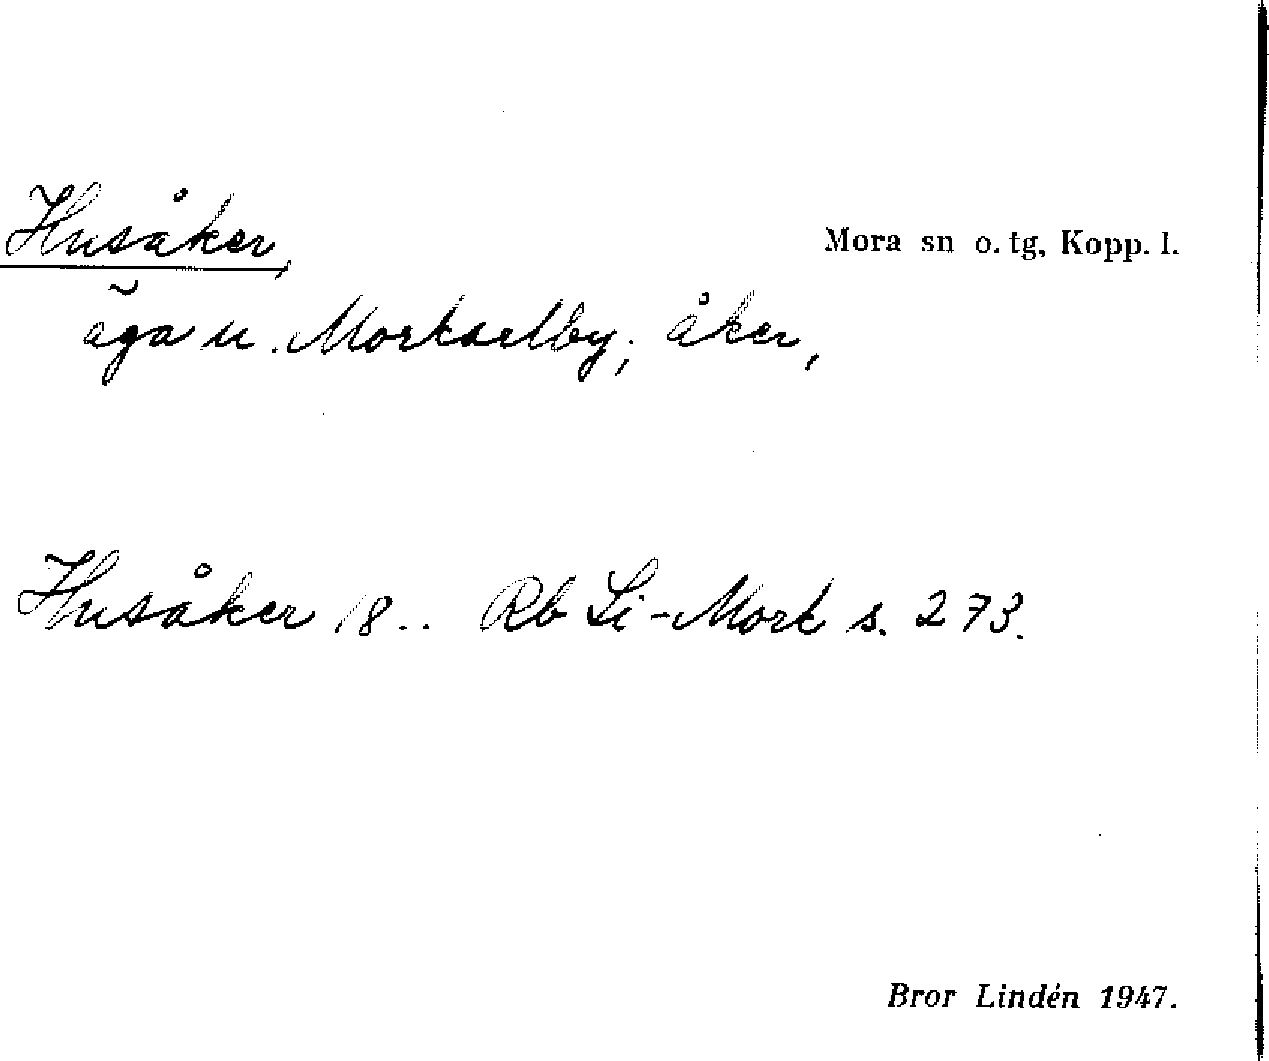 Husåker,
Mora sn o. tg, Kopp. l.
äga u. Morkarlby; åker,
Husåker 18.. Rb Li-Mork s. 273.
Bror Lindén 1947.